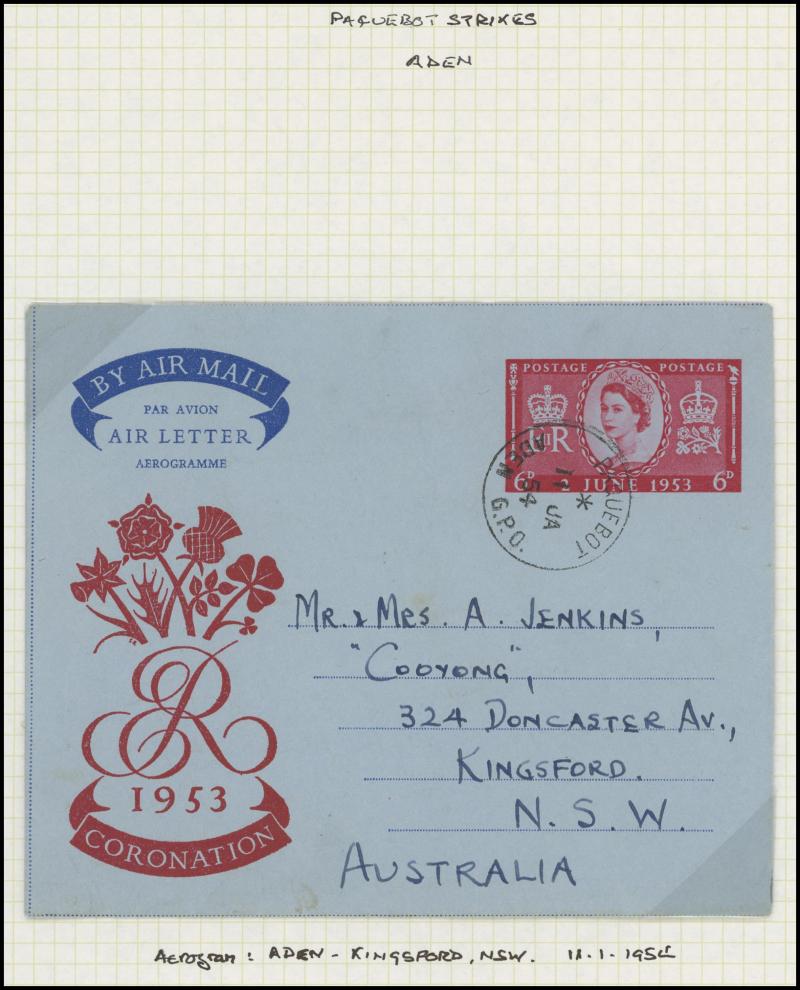 PAQUEBOT STRIKES
ADEN
BY AIR MAIL
PAR AVION
AIR LETTER
AEROGRAMME
POSTAGE POSTAGE
EIIR
6D 2 JUNE 1953 6D
PAQUEBOT
*
11 JA
54
ADEN G.P.O.
MR. & MRS. A. JENKINS,
"COOYONG",
324 DONCASTER AV.,
KINGSFORD.
N. S. W.
AUSTRALIA
ER
1953
CORONATION
Aerogram: ADEN - KINGSFORD, NSW. 11-1-1954